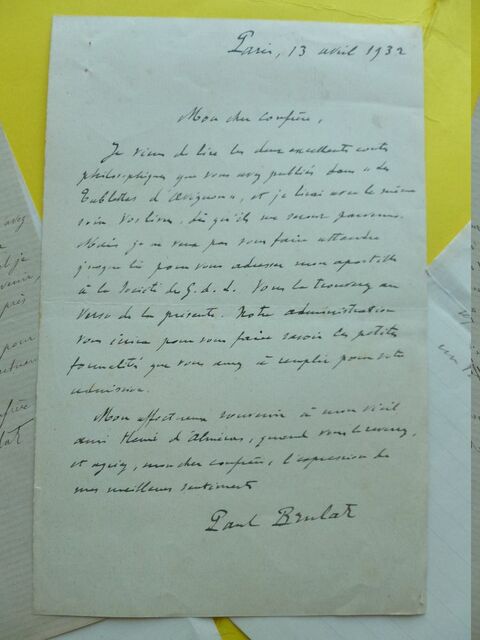 Paris, 13 avril 1932
Mon cher confrère,
Je viens de lire les deux excellents contes
philosophiques que vous avez publiés dans « Les
Tablettes d'Avignon », et je lirai avec le même
soin vos livres, dès qu'ils me seront parvenus.
Mais je ne veux pas vous faire attendre
jusque là pour vous adresser mon apostille
à la Société des G. d. L. Vous la trouverez au
verso de la présente. Notre administration
vous écrira pour vous faire savoir les petites
formalités que vous avez à remplir pour votre
admission.
Mon affectueux souvenir à mon vieil
ami Henri d'Alméras, quand vous le verrez,
et agréez, mon cher confrère, l'expression de
mes meilleurs sentiments
Paul Brulat